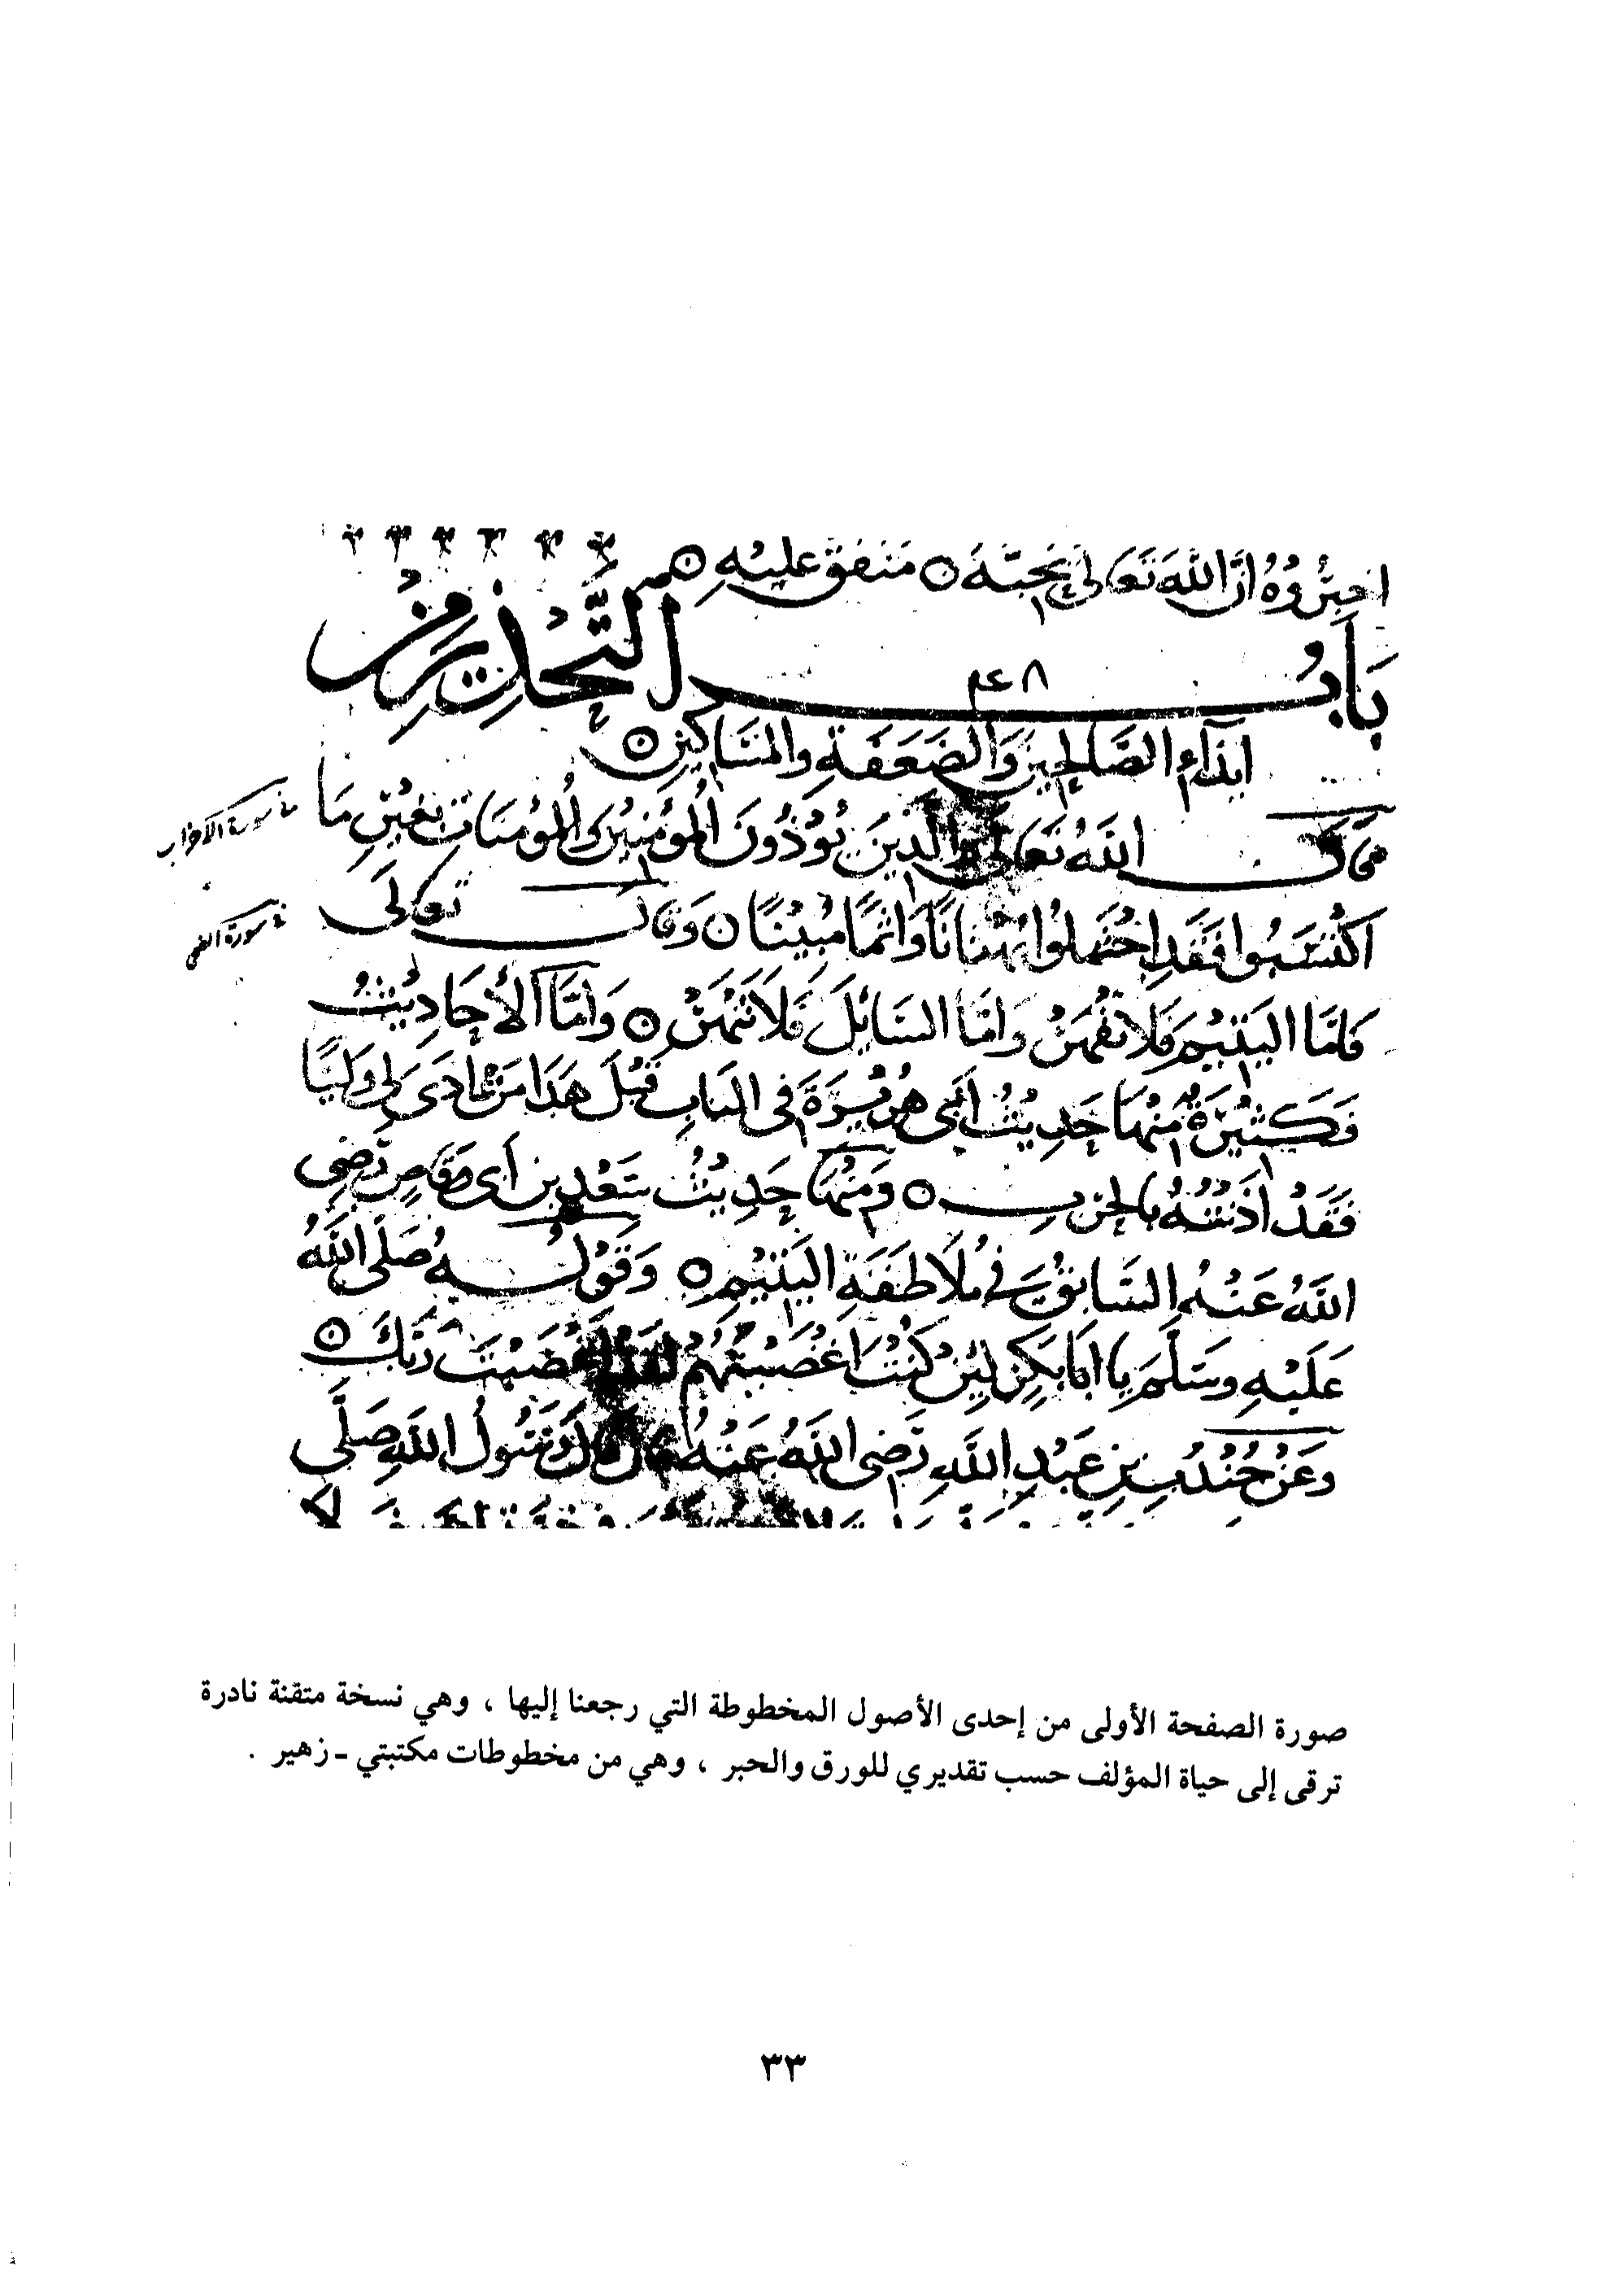 اخبِرُوهُ انَّ اللهَ تَعَالَى يُحِبُّهُ ۞ مُتَّفَقٌ عَلَيْهِ ۞
بَابُ التَّحْذِيرِ مِنْ
٤٨
ايذَآءِ الصَّالِحِينَ وَالضَّعَفَةِ والمَسَاكِينِ ۞
قَالَ اللهُ تَعَالَى وَالَّذِينَ يُوْذُونَ الْمُؤْمِنِينَ وَالْمُؤْمِنَاتِ بِغَيْرِ مَا
سورة الاحزاب
اكْتَسَبُوا فَقَدِ احْتَمَلُوا بُهْتَانًا وَاثْمًا مُبِيْنًا ۞ وَقَالَ تَعَالَى
سورة الضحى
فَامَّا اليَتِيْمَ فَلَا تَقْهَرْ وَامَّا السَّايِلَ فَلَا تَنْهَرْ ۞ وَامَّا الأَحَادِيْثُ
فَكَثِيْرَةٌ مِنْهَا حَدِيْثُ أَبِي هُرَيْرَةَ فِي البَابِ قَبْلَ هَذَا مَنْ عَادَى لِي وَلِيًّا
فَقَدْ اذَنْتُهُ بِالحَرْبِ ۞ وَمِنْهَا حَدِيْثُ سَعْدِ بنِ أَبِي وَقَّاصٍ رَضِيَ
اللهُ عَنْهُ السَّابِقُ فِي مُلَاطَفَةِ اليَتِيْمِ ۞ وَقَوْلُهُ صَلَّى اللهُ
عَلَيْهِ وَسَلَّمَ يَا ابَا بَكْرٍ لَئِنْ كُنْتَ اغْضَبْتَهُمْ لَقَدْ اغْضَبْتَ رَبَّكَ ۞
وَعَنْ جُنْدُبِ بنِ عَبْدِ اللهِ رَضِيَ اللهُ عَنْهُ قَالَ قَالَ رَسُولُ اللهِ صَلَّى
صورة الصفحة الأولى من إحدى الأصول المخطوطة التي رجعنا إليها ، وهي نسخة متقنة نادرة
ترقى إلى حياة المؤلف حسب تقديري للورق والحبر ، وهي من مخطوطات مكتبتي ـ زهير .
٣٣